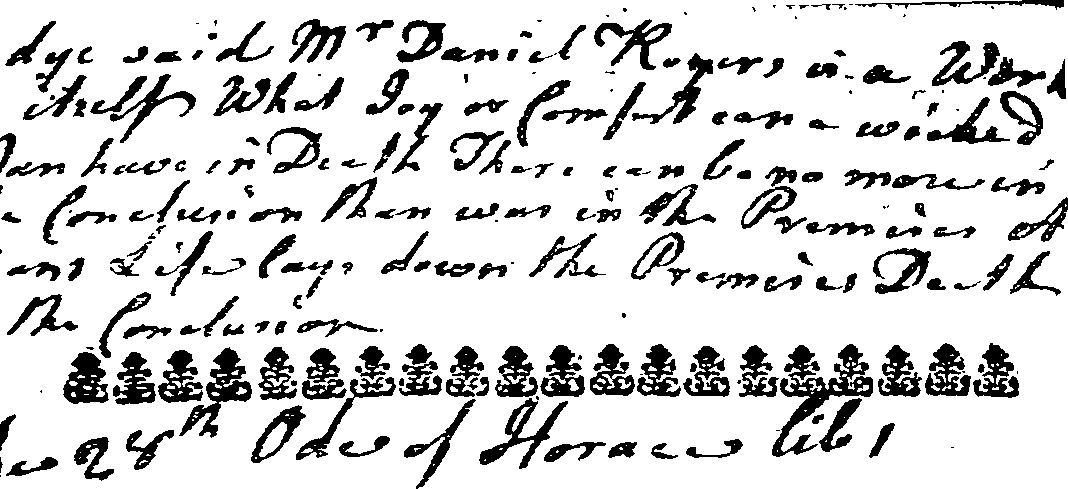 dye said Mr Daniel Rogers in a Word
itself What Joy or Comfort can a wicked
Man have in Death There can be no more in
e Conclusion than was in the Premises of
ans Life lays down the Premises Death
the Conclusion
28th Ode of Horace lib 1